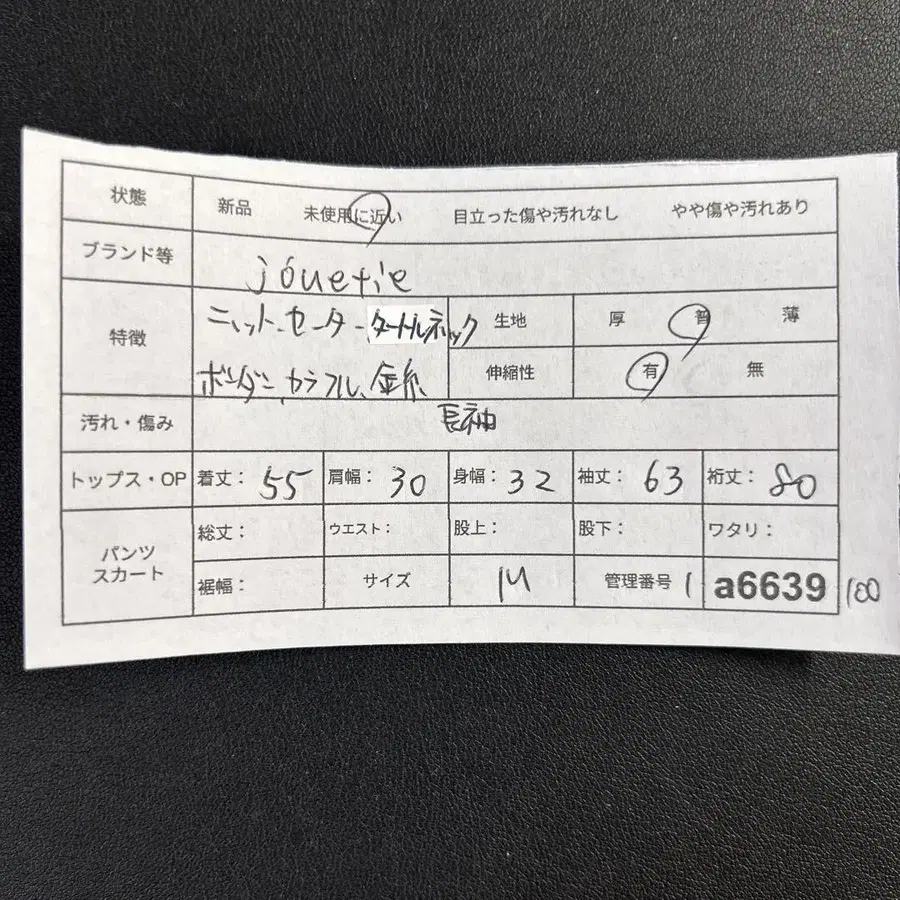 状態 新品 未使用に近い 目立った傷や汚れなし やや傷や汚れあり
ブランド等 jouetie
特徴 ニット、セーター、タートルネック 生地 厚 普 薄
ボーダー、カラフル、金糸 伸縮性 有 無
汚れ・傷み 長袖
トップス・OP 着丈: 55 肩幅: 30 身幅: 32 袖丈: 63 裄丈: 80
パンツ スカート 総丈: ウエスト: 股上: 股下: ワタリ:
裾幅: サイズ M 管理番号 1 a6639 100